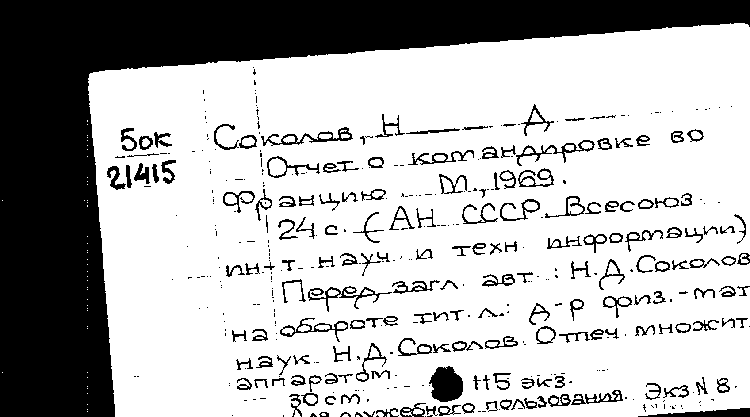 5ок
21415
Соколов, Н Д
Отчет о командировке во
Францию М., 1969.
24 с. (АН СССР. Всесоюз
ин-т науч и техн информации)
Перед загл авт : Н.Д.Соколов
на обороте тит.л.: д-р физ.-мат
наук Н.Д.Соколов. Отпеч множит.
аппаратом.
30 см. 115 экз.
Для служебного пользования. Экз N 8.